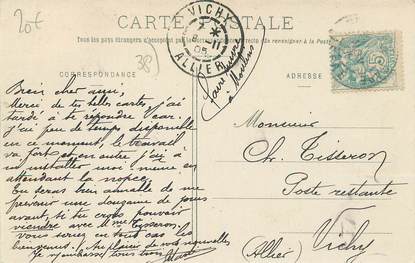 20€
CARTE POSTALE
Tous les pays étrangers n'acceptent pas la
se renseigner à la Poste
VICHY
8
05
ALLIER
38
CORRESPONDANCE
ADRESSE
Bien cher ami,
Merci de tes belles cartes, j'ai
tardé à te répondre car
j'ai peu de temps disponible
en ce moment, le travail
va fort et en outre j'ai à
m'installer moi-même en
attendant la
Tu serais bien aimable de me
prévenir une douzaine de jours
avant, si tu crois pouvoir
viendre avec Mme Tisseron.
Vous seriez en tout cas les
bienvenus. Au plaisir de vos nouvelles
Je vous embrasse tous trois
à
Monsieur
Ch. Tisseron
Poste restante
Vichy
(Allier)